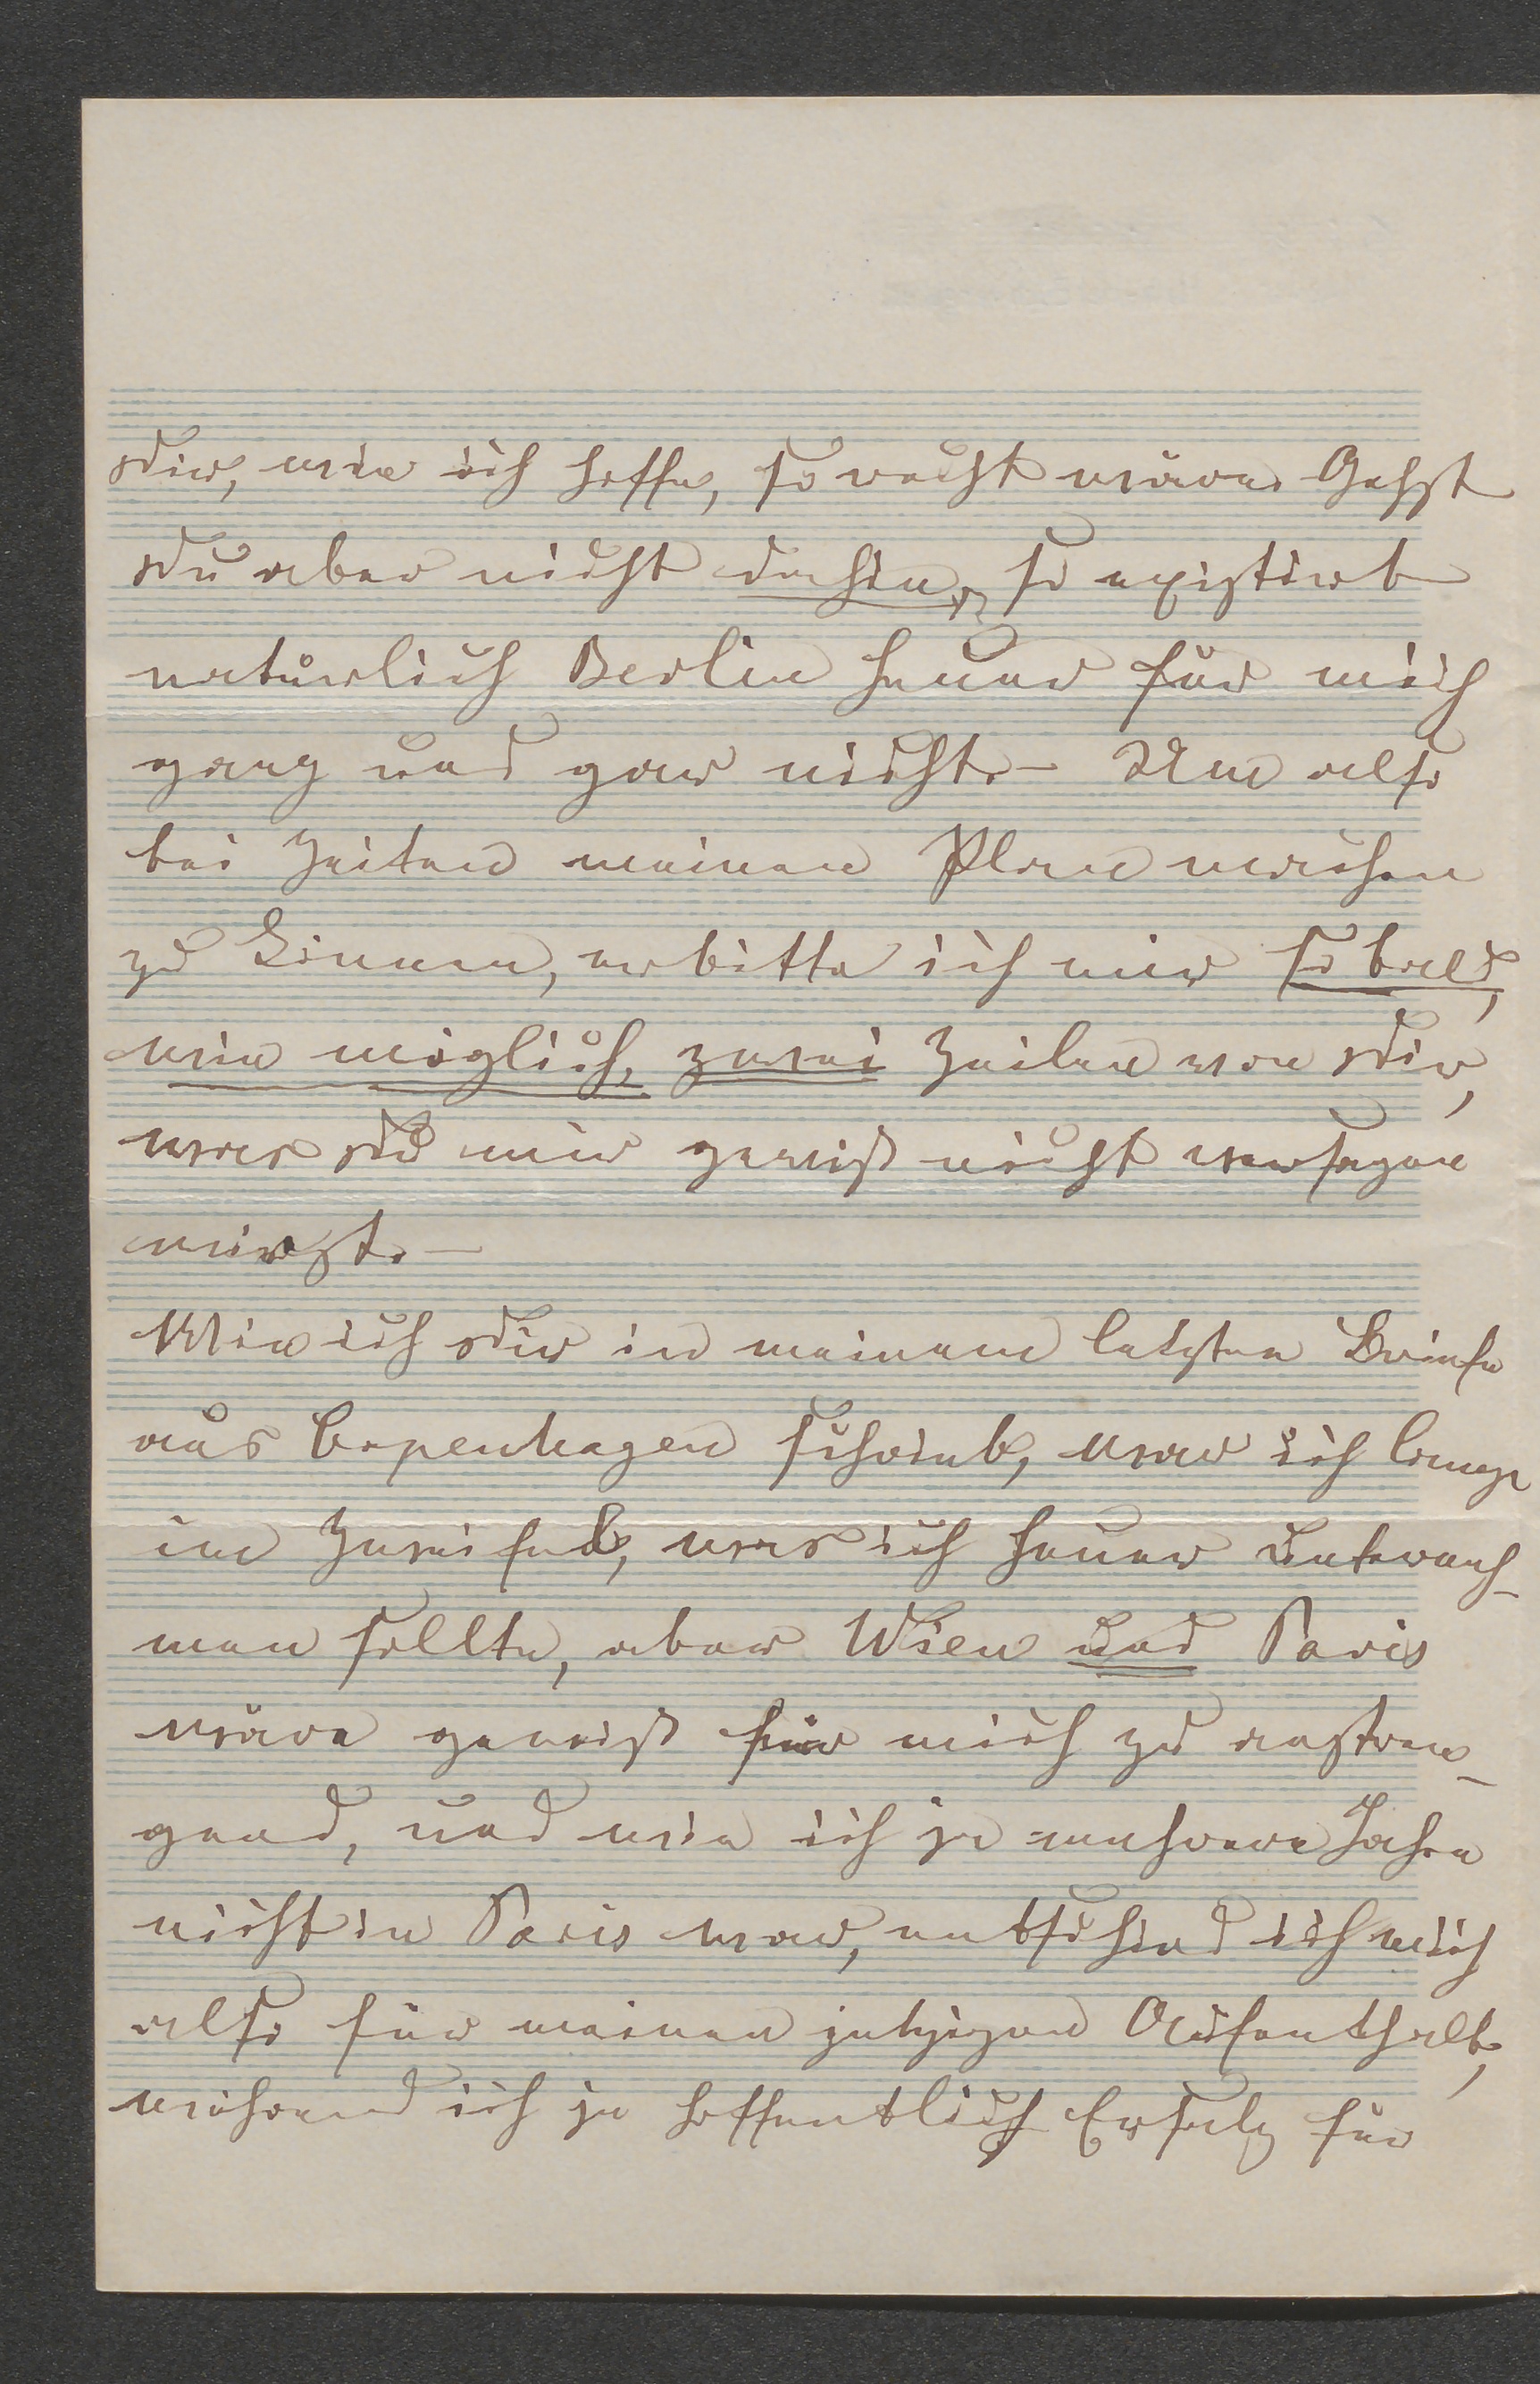 Dir, wie ich hoffe, so recht wäre. Gehst
Du aber nicht dahin, so existirt
natürlich Berlin heuer für mich
ganz und gar nicht. – Um also
bei Zeiten meinen Plan machen
zu können, erbitte ich mir so bald,
wie möglich, zwei Zeilen von Dir,
was Du mir gewiß nicht versagen
wirst. –
Wie ich Dir in meinem letzten Briefe
aus Copenhagen schrieb, war ich lange
im Zweifel, was ich heuer unterneh-
men sollte, aber Wien und Paris
wäre gewiß für mich zu anstren-
gend, und wie ich ja mehrere Jahre
nicht in Paris war, entschied ich mich
also für meinen jetzigen Aufenthalt,
während ich ja hoffentlich Erfolg für